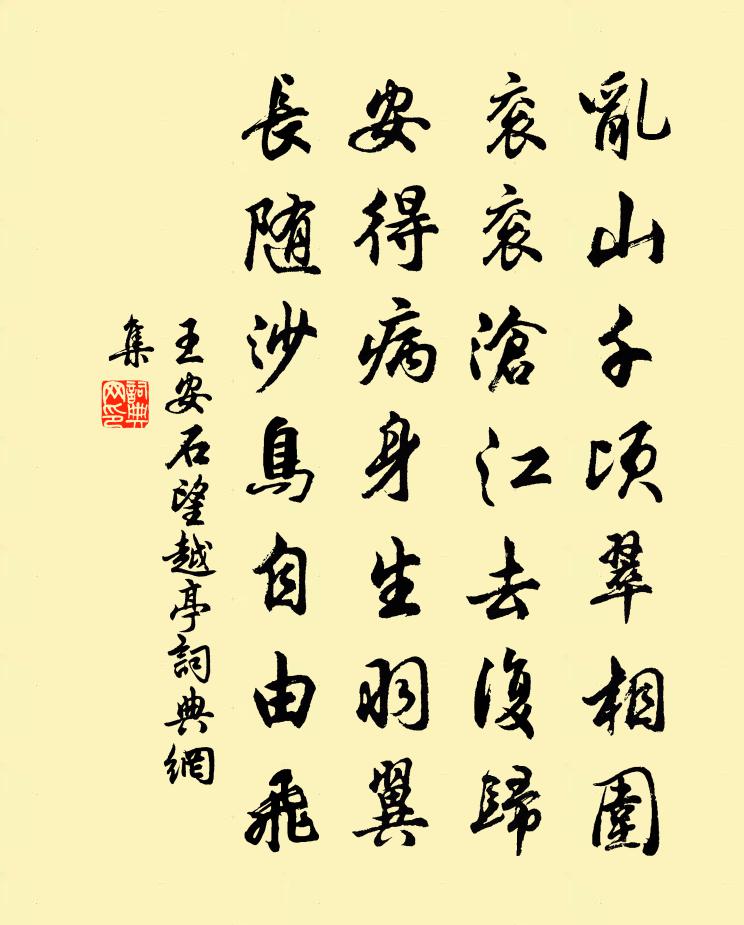 亂山千頃翠相圍
衮衮滄江去復歸
安得病身生羽翼
長随沙鳥自由飛
王安石望越亭詞典網
集
詞典
网印